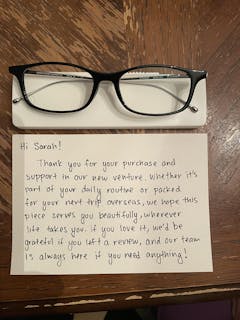 Hi Sarah!
Thank you for your purchase and
support in our new venture. Whether it's
part of your daily routine or packed
for your next trip overseas, we hope this
piece serves you beautifully, wherever
life takes you. If you love it, we'd be
grateful if you left a review, and our team
is always here if you need anything!